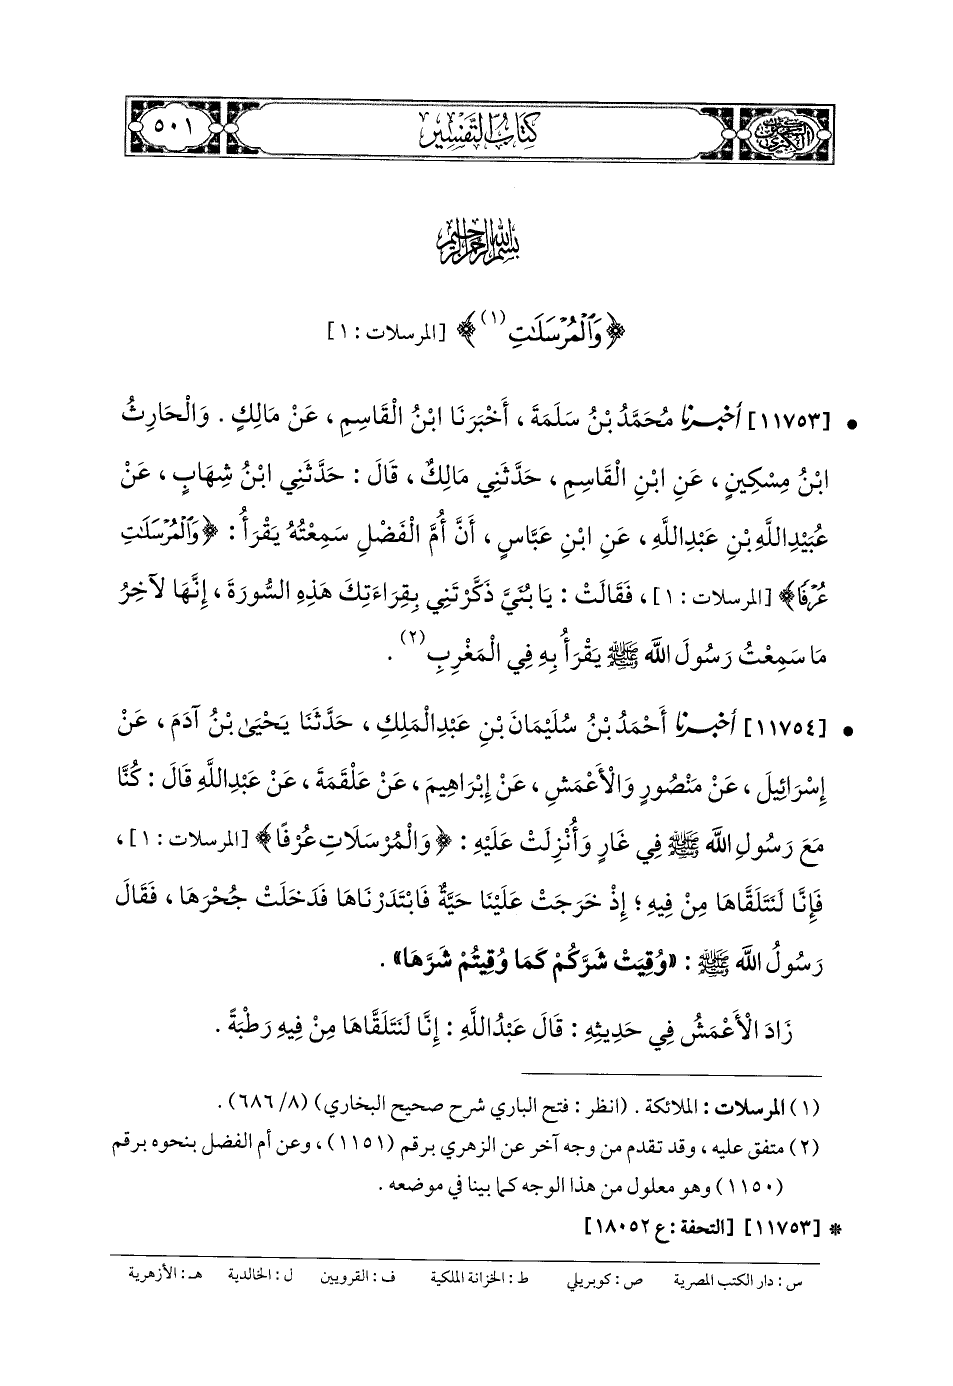 كتاب التفسير
٥٠١
بسم الله الرحمن الرحيم
﴿وَٱلۡمُرۡسَلَٰتِ(١)﴾ [المرسلات : ١]
• [١١٧٥٣] أخبرنا مُحَمَّدُ بْنُ سَلَمَةَ ، أَخْبَرَنَا ابْنُ الْقَاسِمِ ، عَنْ مَالِكٍ . وَالْحَارِثُ
ابْنُ مِسْكِينٍ ، عَنِ ابْنِ الْقَاسِمِ ، حَدَّثَنِي مَالِكٌ ، قَالَ : حَدَّثَنِي ابْنُ شِهَابٍ ، عَنْ
عُبَيْدِ اللَّهِ بْنِ عَبْدِ اللَّهِ ، عَنِ ابْنِ عَبَّاسٍ ، أَنَّ أُمَّ الْفَضْلِ سَمِعْتُهُ يَقْرَأُ : ﴿وَٱلۡمُرۡسَلَٰتِ
عُرۡفٗا﴾ [المرسلات : ١] ، فَقَالَتْ : يَا بُنَيَّ ذَكَّرْتَنِي بِقِرَاءَتِكَ هَذِهِ السُّورَةَ ، إِنَّهَا لَآخِرُ
مَا سَمِعْتُ رَسُولَ اللَّهِ ﷺ يَقْرَأُ بِهِ فِي الْمَغْرِبِ(٢) .
• [١١٧٥٤] أخبرنا أَحْمَدُ بْنُ سُلَيْمَانَ بْنِ عَبْدِ الْمَلِكِ ، حَدَّثَنَا يَحْيَى بْنُ آدَمَ ، عَنْ
إِسْرَائِيلَ ، عَنْ مَنْصُورٍ وَالْأَعْمَشِ ، عَنْ إِبْرَاهِيمَ ، عَنْ عَلْقَمَةَ ، عَنْ عَبْدِ اللَّهِ قَالَ : كُنَّا
مَعَ رَسُولِ اللَّهِ ﷺ فِي غَارٍ وَأُنْزِلَتْ عَلَيْهِ : ﴿وَالْمُرْسَلَاتِ عُرْفًا﴾ [المرسلات : ١] ،
فَإِنَّا لَنَتَلَقَّاهَا مِنْ فِيهِ ؛ إِذْ خَرَجَتْ عَلَيْنَا حَيَّةٌ فَابْتَدَرْنَاهَا فَدَخَلَتْ جُحْرَهَا ، فَقَالَ
رَسُولُ اللَّهِ ﷺ : «وُقِيَتْ شَرَّكُمْ كَمَا وُقِيتُمْ شَرَّهَا» .
زَادَ الْأَعْمَشُ فِي حَدِيثِهِ : قَالَ عَبْدُ اللَّهِ : إِنَّا لَنَتَلَقَّاهَا مِنْ فِيهِ رَطْبَةً .
(١) المرسلات : الملائكة . (انظر : فتح الباري شرح صحيح البخاري) (٨/ ٦٨٦) .
(٢) متفق عليه ، وقد تقدم من وجه آخر عن الزهري برقم (١١٥١) ، وعن أم الفضل بنحوه برقم
(١١٥٠) وهو معلول من هذا الوجه كما بينا في موضعه .
* [١١٧٥٣] [التحفة : ع ١٨٠٥٢]
س : دار الكتب المصرية ص : كوبريلي ط : الخزانة الملكية ف : القرويين ل : الخالدية هـ : الأزهرية